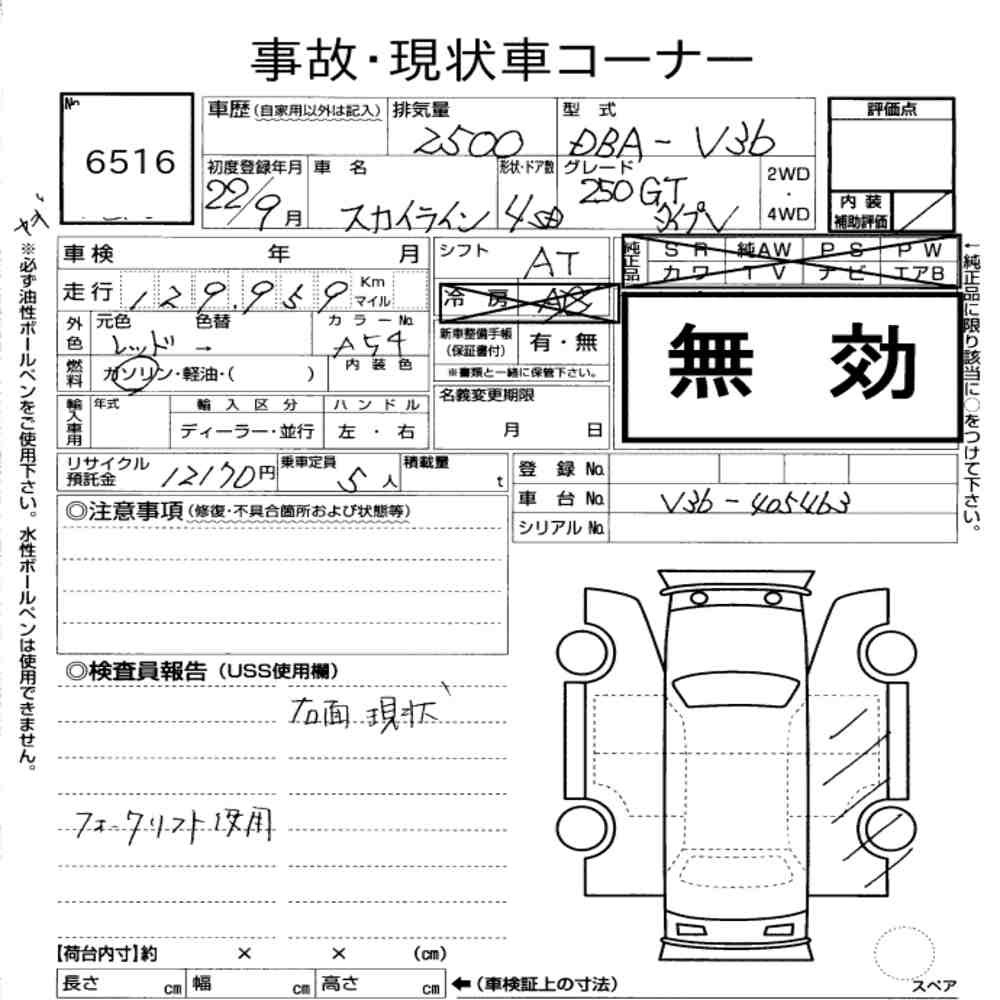 事故・現状車コーナー
No.
6516
車歴(自家用以外は記入)
排気量
2500
型式
DBA-V36
評価点
初度登録年月
22/9月
車名
スカイライン
形状・ドア数
4SD
グレード
250GT
タイプV
2WD
・
4WD
内装
補助評価
※必ず油性ボールペンをご使用下さい。水性ボールペンは使用できません。
車検 年 月
シフト
AT
純正品
SR 純AW PS PW
カワ TV ナビ エアB
←純正品に限り該当に○をつけて下さい。
走行 129,959 Km マイル
冷房 AC
無効
外色
元色 色替
レッド →
カラーNo.
A54
新車整備手帳
(保証書付)
有・無
※書類と一緒に保管下さい。
燃料
ガソリン・軽油・( )
内装色
名義変更期限
月 日
輸入車用
年式
輸入区分
ディーラー・並行
ハンドル
左・右
リサイクル
預託金
12170円
乗車定員
5人
積載量
t
登録No.
車台No. V36-405463
シリアルNo.
◎注意事項(修復・不具合箇所および状態等)
◎検査員報告(USS使用欄)
右面現状
フォークリフト使用
【荷台内寸】約 × × (cm)
長さ cm 幅 cm 高さ cm
←(車検証上の寸法)
スペア